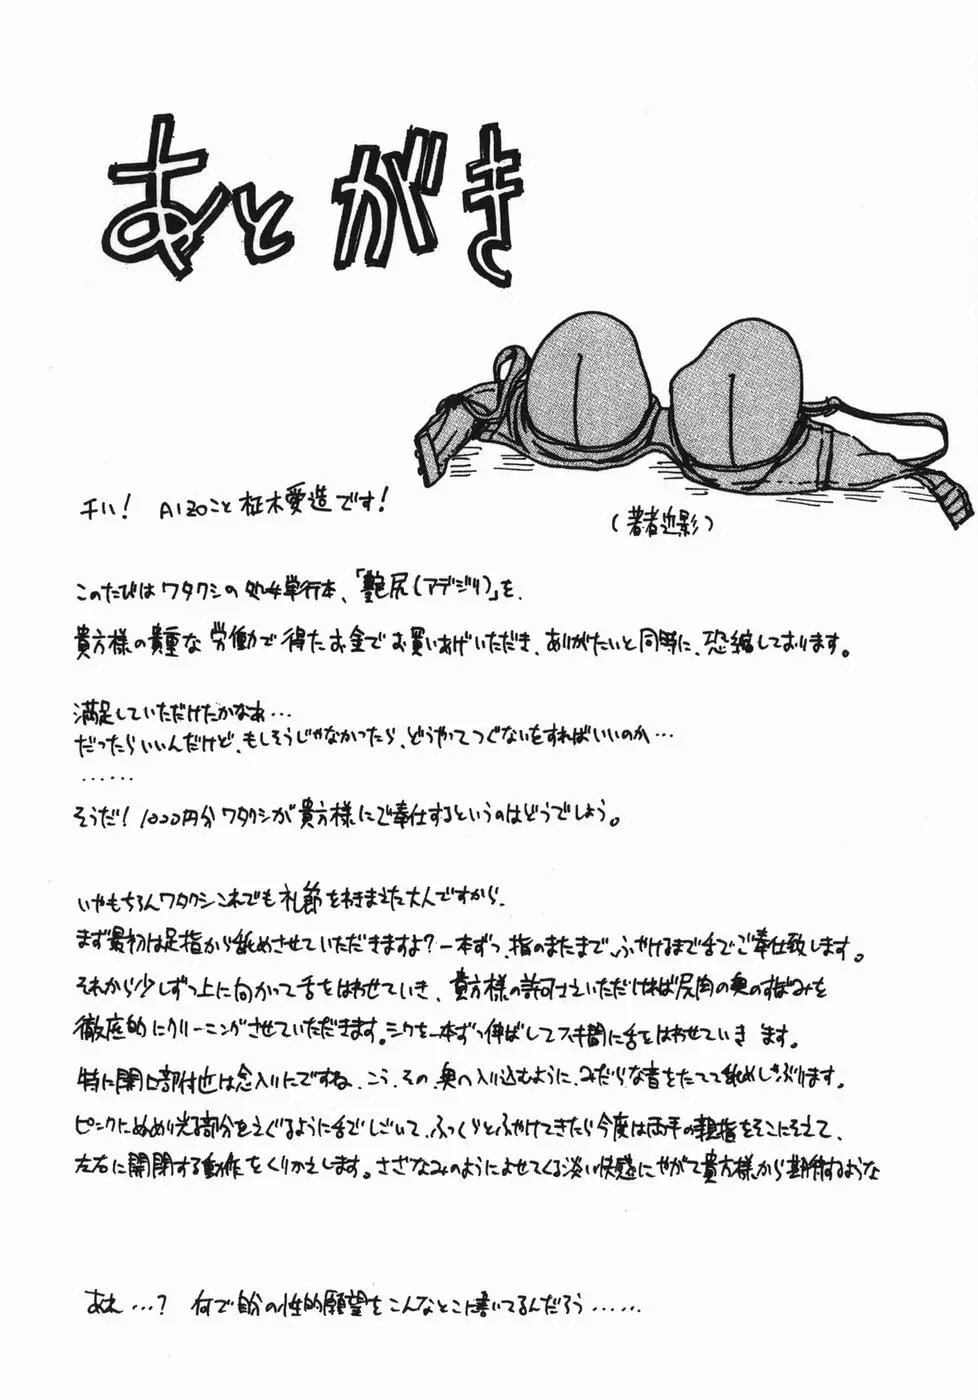 あとがき
チハ! AIZOこと柾木愛造です!
(著者近影)
このたびはワタクシの処女単行本、「艶尻(アデジリ)」を、
貴方様の貴重な労働で得たお金でお買いあげいただき、ありがたいと同時に、恐縮しております。
満足していただけたかなあ…
だったらいいんだけど、もしそうじゃなかったら、どうやってつぐないをすればいいのか…
……
そうだ! 1000円分ワタクシが貴方様にご奉仕するというのはどうでしょう。
いやもちろんワタクシこれでも礼節をわきまえた大人ですから、
まず最初は足指から舐めさせていただきますよ?一本ずつ、指のまたまで、ふやけるまで舌でご奉仕致します。
それから少しずつ上に向かって舌をはわせていき、貴方様の許可さえいただければ尻肉の奥のすぼみを
徹底的にクリーニングさせていただきます。シワを一本ずつ伸ばしてスキ間に舌をはわせていき ます。
特に開口部付近は念入りにですね、こう、その奥へ入り込むように、みだらな音をたてて舐めしゃぶります。
ピンクにぬめり光る部分をえぐるように舌でしごいて、ふっくらとふやけてきたら今度は両手の親指をそこにそえて、
左右に開閉する動作をくりかえします。さざなみのようによせてくる淡い快感にやがて貴方様から期待するような
あれ…? 何で自分の性的願望をこんなとこに書いてるんだろう……